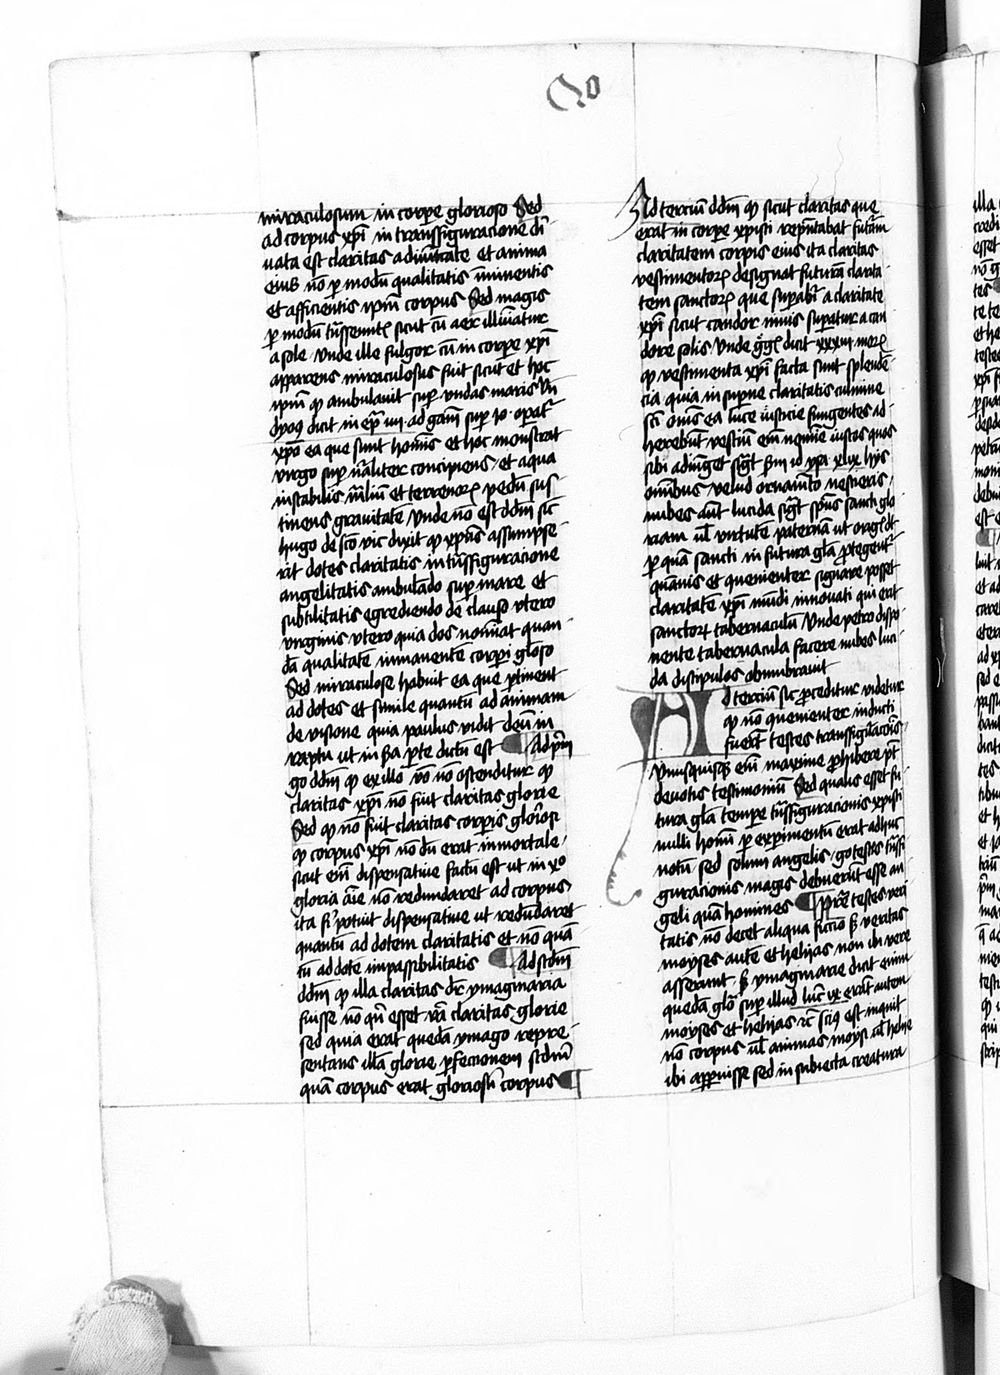 Qo
miraculosum in corpe glorioso Sed
ad corpus xpi in transfiguracione di
uata est claritas a diuinitate et anima
eius nō p modū qualitatis īmanentis
et afficientis ipm̄ corpus Sed magis
p modū sicut cū aer illūiatur
a sole vnde ille fulgor cū in corpe xpi
apparens miraculosus fuit sicut et hoc
ipm̄ qp ambulauit sup vndas maris Vn̄
dicit in ep̄ iiii ad gaiū sup opat͛
xpō ea que sunt hoīnis et hoc monstrat
virgo sup nāliter concipiens et aqua
instabilis et terrenoꝝ pedū sus
tinens grauitatē Vnde nō est ddm̄ sic
hugo de sc̄o vic dixit qp xpūs assumpse
rit dotes claritatis in tn̄sfiguracione
angelitatis ambulādo sup mare et
subtilitatis egrediendo de clauso vtero
virginis vtero quia dos nomīat quan
dā qualitatē inmanentē corpi gloso
Sed miraculose habuit ea que ptinent
ad dotes et simile quantū ad animam
de visione quia paulus vidit deū in
raptu ut in sc̄da pte dictū est ¶ Ad pm̄
go ddm̄ qp ex illo vō nō ostenditur qp
claritas xpi nō fuit claritas glorie
Sed qp nō fuit claritas corpis gloriosi
qp corpus xpi nō dū erat inmortale
sicut eni dispensatiue factū est ut in xo
gloria aīe nō redundaret ad corpus
ita fi potuit dispensatiue ut redūdaret
quantū ad dotem claritatis et nō quā
tū ad dotē impassibilitatis ¶ Ad scdm̄
ddm̄ qp illa claritas dr̄ ymaginaria
fuisse nō qn̄ esset v̄a claritas glorie
sed quia erat quedā ymago repre
sentans illā glorie pfectionem scdm̄
quam corpus erat gloriosū corpus ¶
Ad terciū ddm̄ qp sicut claritas que
erat in corpe xpisti repn̄tabat futurā
claritatem corpis eius ita claritas
vestimentoꝝ designat futurā clarita
tem sanctoꝝ que supabit͛ a claritate
xpi sicut candor niuis supatur a can
dore solis Vnde gg͛ dicit xxxii moꝝ
qp vestimenta xpi facta sunt splende
cia quia in supne claritatis culmine
sc̄i om̄s ea luce iusticie fungentes ad
herebūt vestiū eni nomine iustos quos
sibi adiūget sigt̄ id ysa xlix hijs
om̄ibus velud ornamēto vestieris
nubes aūt lucida sigt̄ spūs sancti glo
riam ul̄ virtutē paternā ut orag͛ dt
p quā sancti in futura gl̄a ptegent͛
quāuis et quenienter signare posset
claritatē xpi mūdi innouati qui erit
sanctoꝝ tabernaculū Vnde petro dispo
nente tabernacula facere nubes luci
da discipulos obumbrauit
Ad terciū sic pceditur videtur
qp nō quenienter inducti
fuerit testes transfigurac̄ois
Vnusquisqꝫ eni maxime phibere pt
deuotis testimoniū Sed qualis esset fu
tura gl̄a tempe tn̄sfiguracionis xpisti
nulli homī p experimentū erat adhuc
notū sed solum angelis go testes tn̄sfi
guracionis magis debuerūt esse an
geli quā homines ¶ Pret͛ testes veri
tatis nō decet aliqua fictio sꝫ veritas
moyses autē et helyas non ibi vere
affuerunt sꝫ ymaginarie dicit enim
quedā glo sup illud luc̄ ix erāt autem
moyses et helyas rc̄ sciꝰ est inquit
nō corpus ul̄ animas moysi ul̄ helye
ibi apparuisse sed in subiecta creatura